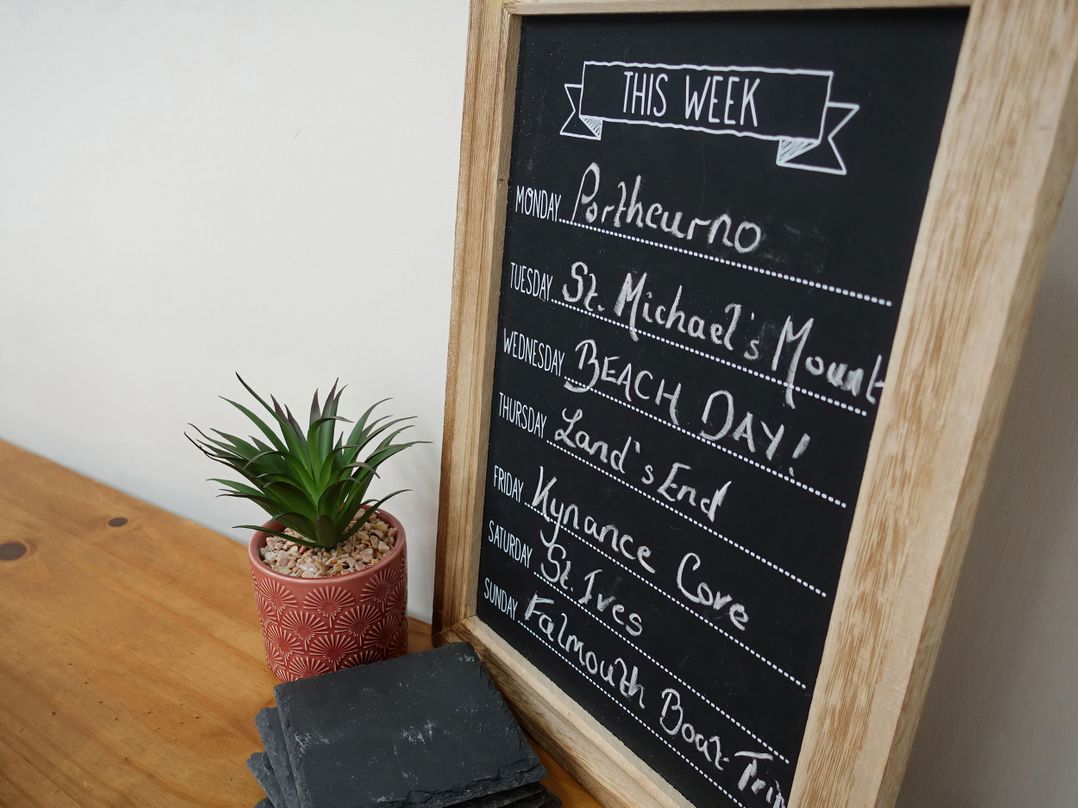 THIS WEEK
MONDAY Porthcurno
TUESDAY St. Michael's Mount
WEDNESDAY BEACH DAY!
THURSDAY Land's End
FRIDAY Kynance Cove
SATURDAY St. Ives
SUNDAY Falmouth Boat Trip